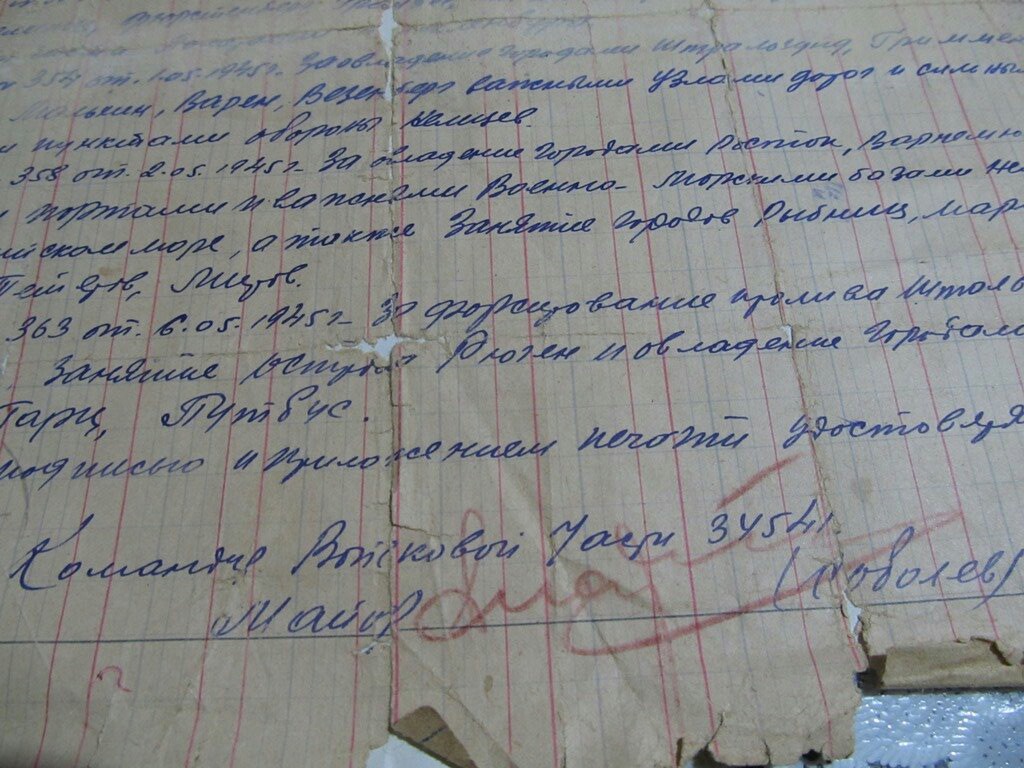 354 от 1.05.1945г. За овладение городами Штральзунд, Гримме
Мальхин, Варен, Везенберг важными узлами дорог и сильны
и пунктами обороны немцев.
358 от. 2.05.1945г. За овладение городами Росток, Варнемю
и портами и важными Военно-Морскими базами не
ийском море, а также Занятие городов Рыбниц, мар
Тетеров, Мцтов.
363 от. 6.05.1945г. За форсирование пролива Штраль
Занятие острова Рюген и овладение городами
Гарц, Путбус.
подписью и приложением печати удостоверя
Командир Войсковой Части 34541
Майор (Соболев)